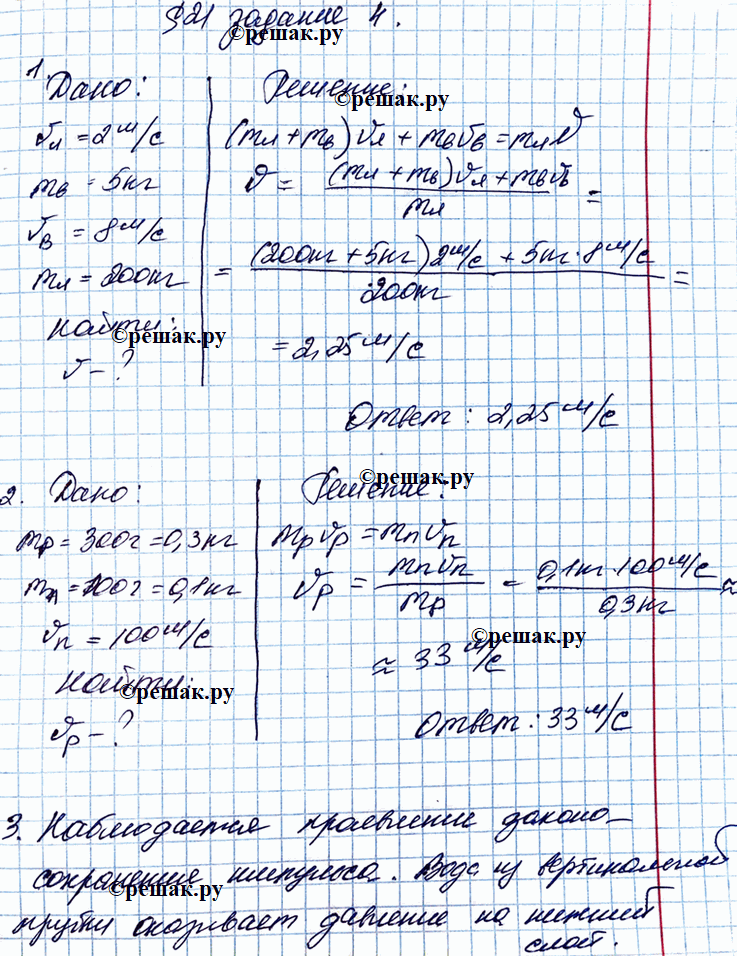 §21 задание 4.
©решак.ру
1. Дано:
vл = 2 м/с
mв = 5 кг
vв = 8 м/с
mл = 200 кг
Найти:
©решак.ру
v - ?
Решение:
©решак.ру
(mл + mв)vл + mвvв = mлv
v = (mл + mв)vл + mвvв / mл =
= (200кг + 5кг)2м/с + 5кг · 8м/с / 200кг =
= 2,25 м/с
Ответ: 2,25 м/с
2. Дано:
mр = 300г = 0,3кг
mп = 100г = 0,1кг
vп = 100 м/с
Найти:
©решак.ру
vр - ?
Решение:
©решак.ру
mрvр = mпvп
vр = mпvп / mр = 0,1кг · 100м/с / 0,3кг ≈
©решак.ру
≈ 33 м/с
Ответ: 33 м/с
3. Наблюдается проявление закона
сохранения импульса. Вода из вертикальной
©решак.ру
трубы оказывает давление на нижний
слой.